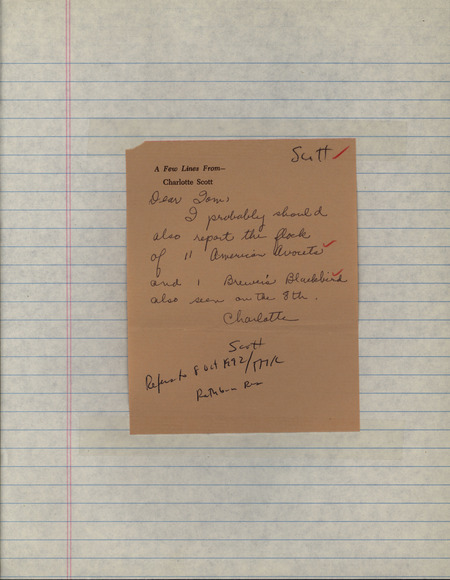 Scott ✓
A Few Lines From—
Charlotte Scott
Dear Tom,
I probably should
also report the flock
of 11 American Avocets ✓
and 1 Brewer's Blackbird ✓
also seen on the 8th.
Charlotte
Scott
Refers to 8 Oct 1992/THK
Rathbun Res